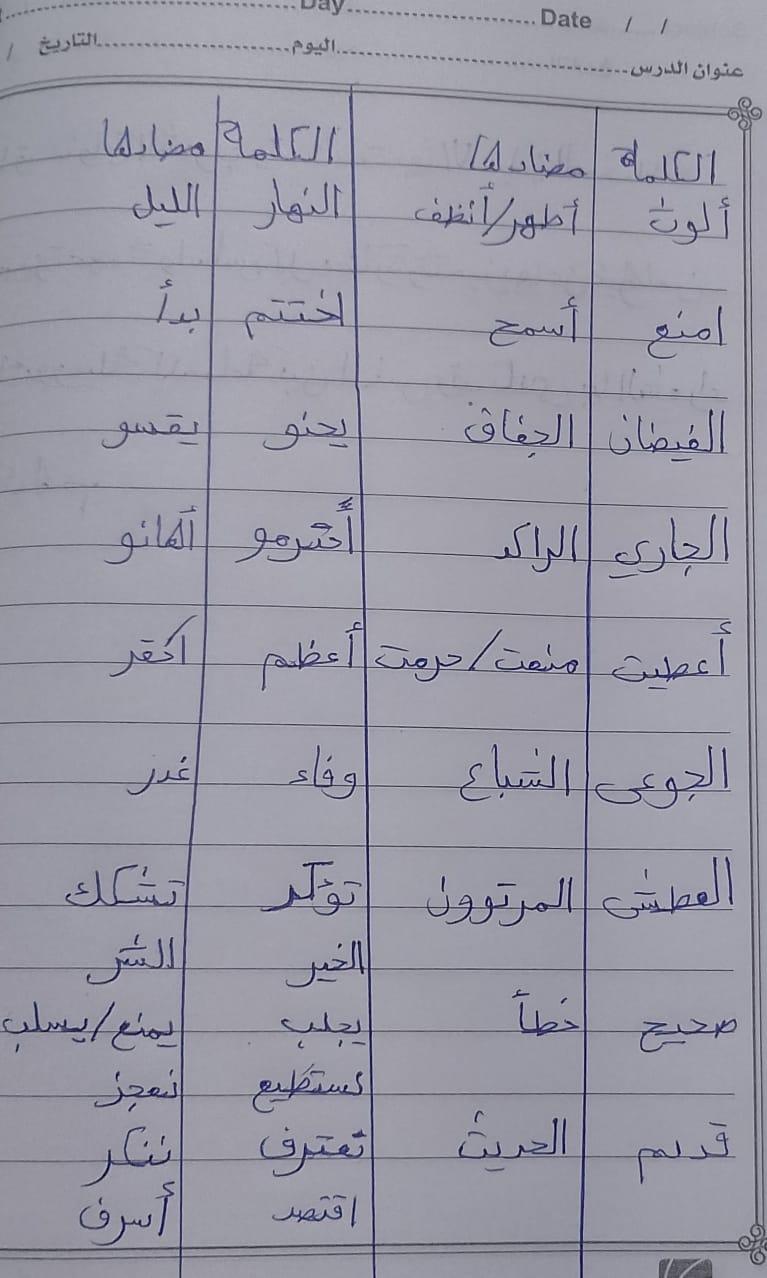 Day ........ Date / /
عنوان الدرس ........ اليوم ........ التاريخ /
الكلمة مضادها الكلمة مضادها
ألوث أطهر/أنظف النهار الليل
امنع أسمح اختتم بدأ
الفيضان الجفاف يحنو يقسو
الجاري الراكد أحترمو أهانو
أعطيت منعت/حرمت أعظم احقر
الجوعى الشباع وفاء غدر
العطشى المرتوون تؤكد تشكك
الخير الشر
صحيح خطأ يجلب يمنع/يسلب
نستطيع نعجز
قديم الحديث تعترف تنكر
اقتصد أسرف